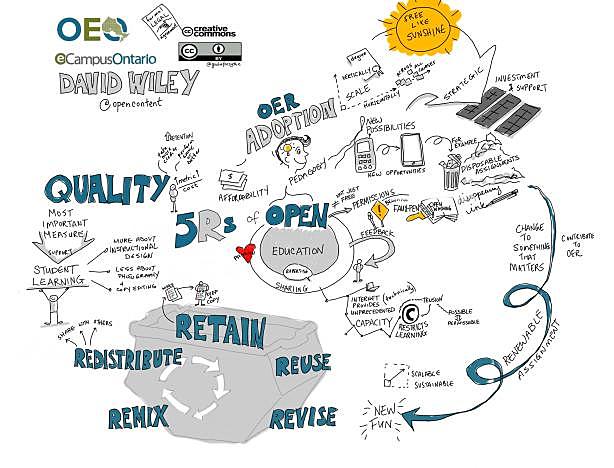 OEO
eCampusOntario
DAVID WILEY
@opencontent
creative commons
BY
FREE LIKE SUNSHINE
STRATEGIC
INVESTMENT & SUPPORT
DEGREE
VERTICALLY
SCALE
HORIZONTALLY
ACROSS ALL
OER ADOPTION
NEW POSSIBILITIES
NEW OPPORTUNITIES
FOR EXAMPLE
DISPOSABLE ASSIGNMENTS
PEDAGOGY
$
AFFORDABILITY
RETENTION
METRIC
COST
QUALITY
MOST IMPORTANT MEASURE
SUPPORT
STUDENT LEARNING
MORE ABOUT INSTRUCTIONAL DESIGN
LESS ABOUT PHOTOGRAPHY & COPY EDITING
5Rs of OPEN
NOT JUST FREE
PERMISSIONS
FAUXPEN
disappearing ink
FEEDBACK
EDUCATION
EXPERTISE
SHARING
INTERNET PROVIDES UNPRECEDENTED CAPACITY
(technically)
TENSION
© RESTRICTS LEARNING
POSSIBLE
PERMISSIBLE
CHANGE TO SOMETHING THAT MATTERS
CONTRIBUTE TO OER
RENEWABLE ASSIGNMENT
KEEP COPY
SHARE WITH OTHERS
RETAIN
REDISTRIBUTE
REUSE
REMIX
REVISE
SCALABLE
SUSTAINABLE
NEW FUN